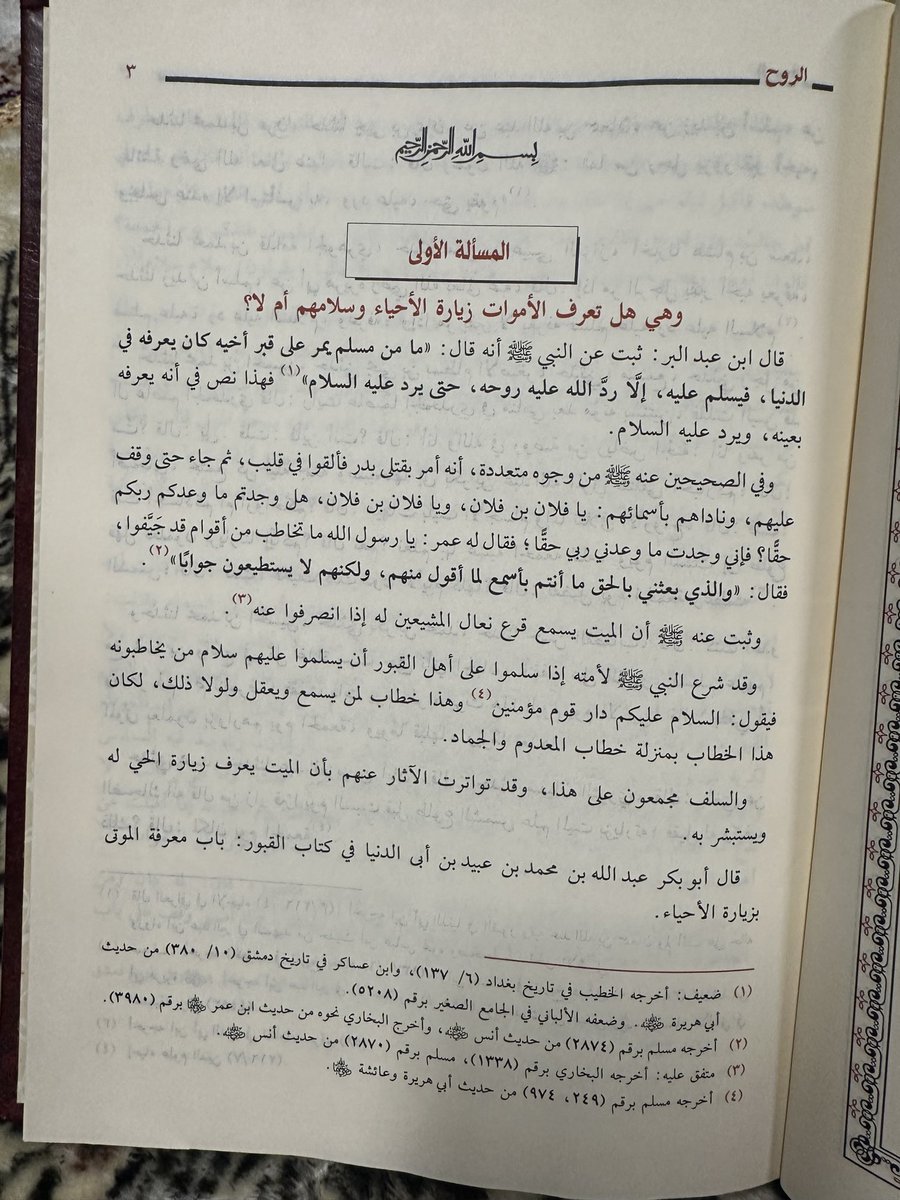 الروح ٣
بسم الله الرحمن الرحيم
المسألة الأولى
وهي هل تعرف الأموات زيارة الأحياء وسلامهم أم لا؟
قال ابن عبد البر: ثبت عن النبي ﷺ أنه قال: «ما من مسلم يمر على قبر أخيه كان يعرفه في
الدنيا، فيسلم عليه، إلَّا ردَّ الله عليه روحه، حتى يرد عليه السلام»(١) فهذا نص في أنه يعرفه
بعينه، ويرد عليه السلام.
وفي الصحيحين عنه ﷺ من وجوه متعددة، أنه أمر بقتلى بدر فألقوا في قليب، ثم جاء حتى وقف
عليهم، وناداهم بأسمائهم: يا فلان بن فلان، ويا فلان بن فلان، هل وجدتم ما وعدكم ربكم
حقًّا؟ فإني وجدت ما وعدني ربي حقًّا؛ فقال له عمر: يا رسول الله ما تخاطب من أقوام قد جَيَّفوا،
فقال: «والذي بعثني بالحق ما أنتم بأسمع لما أقول منهم، ولكنهم لا يستطيعون جوابًا»(٢).
وثبت عنه ﷺ أن الميت يسمع قرع نعال المشيعين له إذا انصرفوا عنه(٣).
وقد شرع النبي ﷺ لأمته إذا سلموا على أهل القبور أن يسلموا عليهم سلام من يخاطبونه
فيقول: السلام عليكم دار قوم مؤمنين(٤) وهذا خطاب لمن يسمع ويعقل ولولا ذلك، لكان
هذا الخطاب بمنزلة خطاب المعدوم والجماد.
والسلف مجمعون على هذا، وقد تواترت الآثار عنهم بأن الميت يعرف زيارة الحي له
ويستبشر به.
قال أبو بكر عبد الله بن محمد بن عبيد بن أبى الدنيا في كتاب القبور: باب معرفة الموتى
بزيارة الأحياء.
(١) ضعيف: أخرجه الخطيب في تاريخ بغداد (٦/ ١٣٧)، وابن عساكر في تاريخ دمشق (١٠/ ٣٨٠) من حديث
أبي هريرة رضي الله عنه. وضعفه الألباني في الجامع الصغير برقم (٥٢٠٨).
(٢) أخرجه مسلم برقم (٢٨٧٤) من حديث أنس رضي الله عنه، وأخرج البخاري نحوه من حديث ابن عمر رضي الله عنهما برقم (٣٩٨٠).
(٣) متفق عليه: أخرجه البخاري برقم (١٣٣٨)، مسلم برقم (٢٨٧٠) من حديث أنس رضي الله عنه.
(٤) أخرجه مسلم برقم (٢٤٩، ٩٧٤) من حديث أبي هريرة وعائشة رضي الله عنهما.